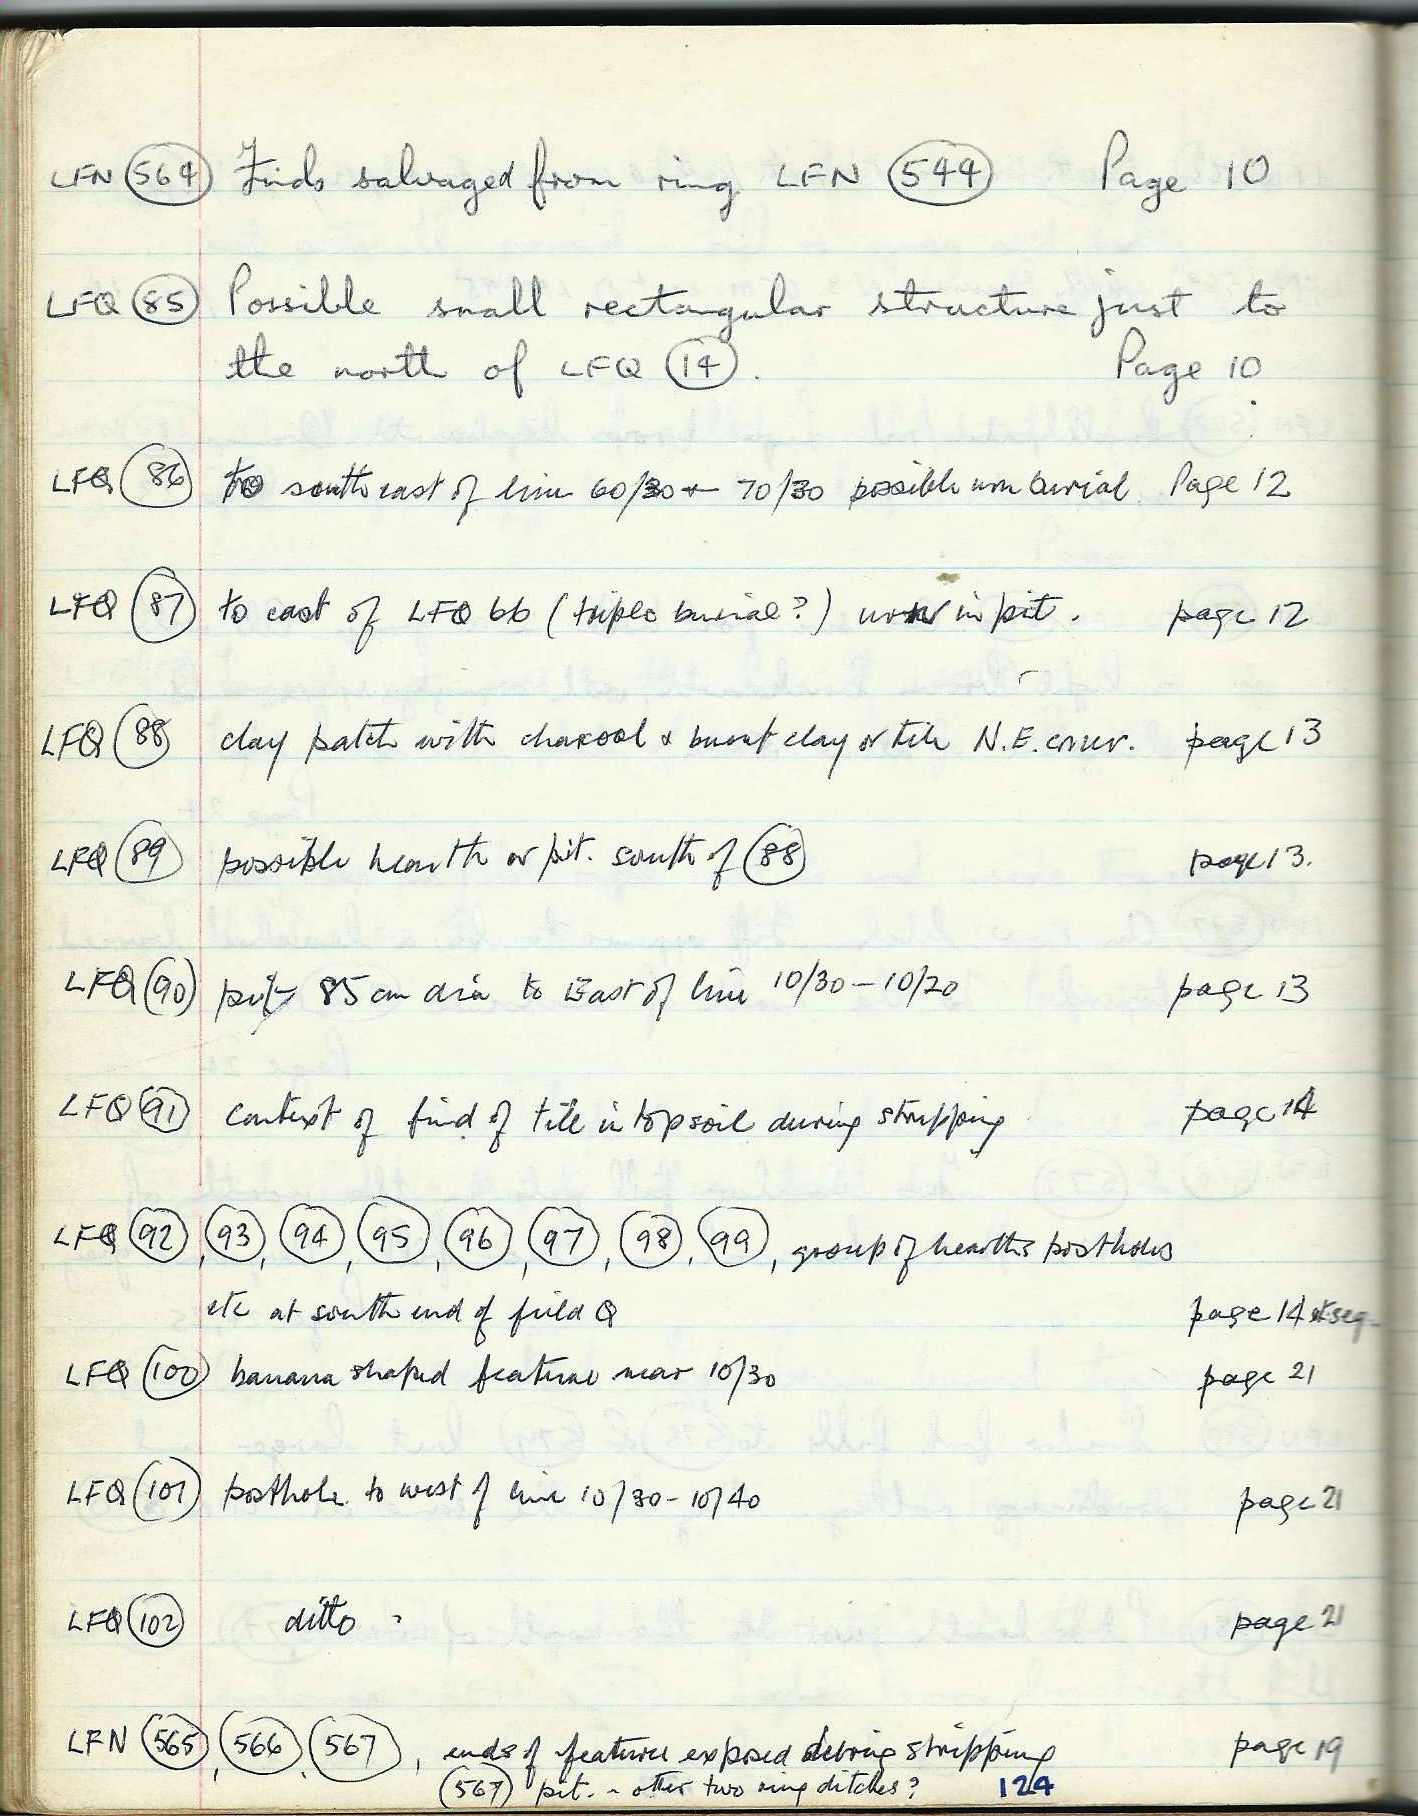 LFN 564 Finds salvaged from ring LFN 544 Page 10
LFQ 85 Possible small rectangular structure just to
the north of LFQ 14. Page 10
LFQ 86 to south east of line 60/30 + 70/30 possible urn burial Page 12
LFQ 87 to east of LFQ 66 (triple burial?) urn in pit. page 12
LFQ 88 clay patch with charcoal & burnt clay or tile N.E. corner. page 13
LFQ 89 possible hearth or pit. south of 88 page 13.
LFQ 90 pit 85 cm dia to East of line 10/30 – 10/20 page 13
LFQ 91 context of find of tile in topsoil during stripping page 14
LFQ 92, 93, 94, 95, 96, 97, 98, 99, group of hearths postholes
etc at south end of field Q page 14 et seq.
LFQ 100 banana shaped feature near 10/30 page 21
LFQ 101 posthole to west of line 10/30 – 10/40 page 21
LFQ 102 ditto . page 21
LFN 565, 566, 567, ends of features exposed during stripping page 19
567 pit. – other two ring ditches? 124